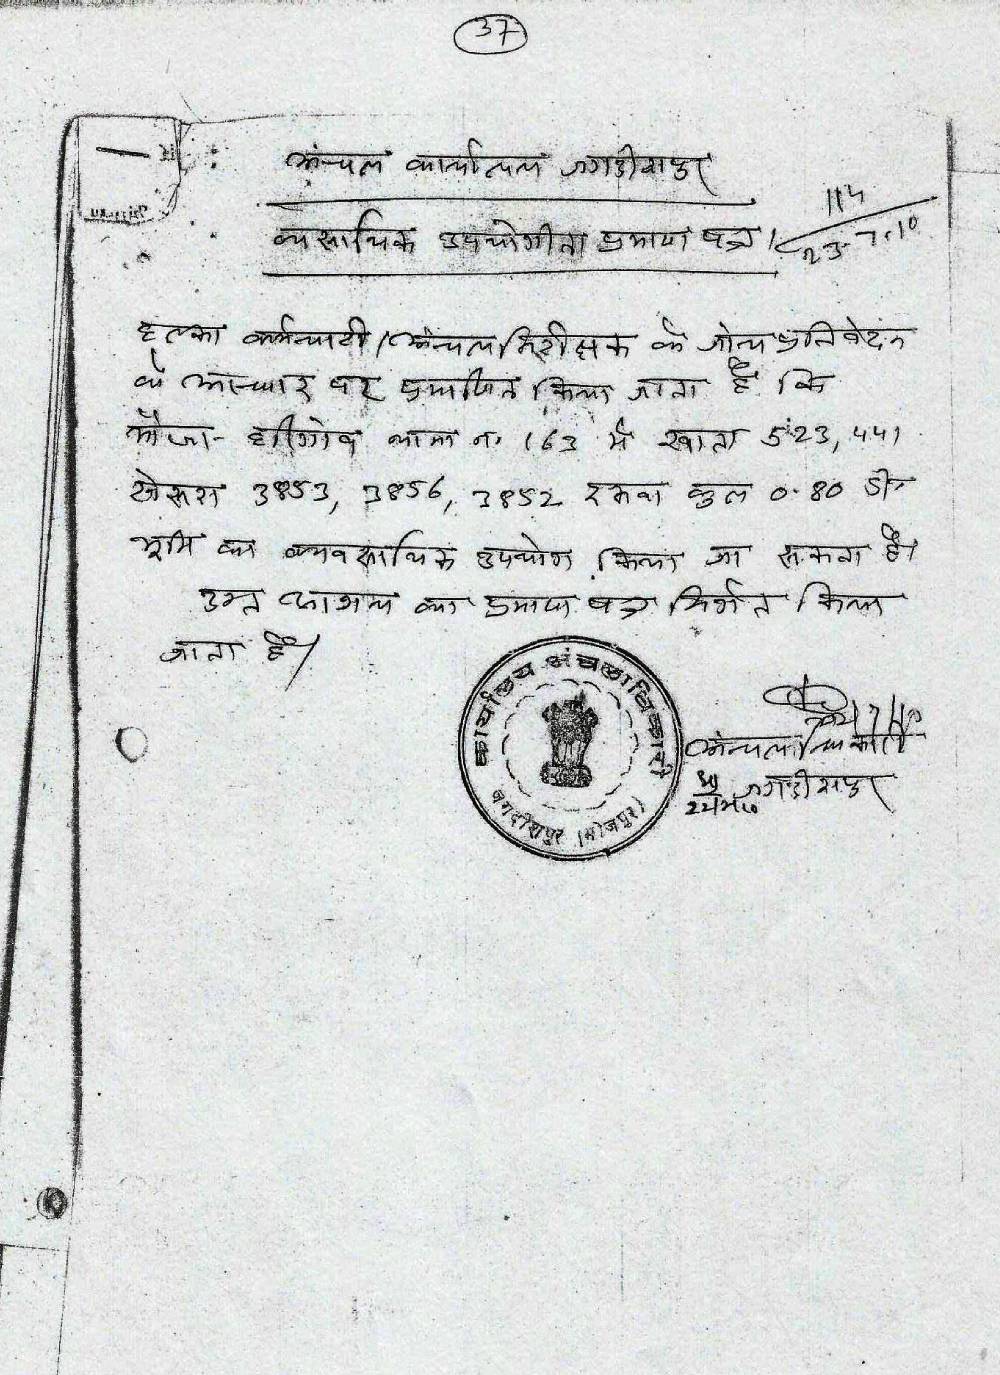 37
अंचल कार्यालय जगदीशपुर
114
23.7.10
व्यसायिक उपयोगीता प्रमाण पत्र।
हल्का कर्मचारी/अंचल निरीक्षक के जाँच प्रतिवेदन
के आधार पर प्रमाणित किया जाता है कि
मौजा- थाना नं 163 में खाता 523, 441
खेसरा 3853, 3856, 3852 रकवा कुल 0.80 डी०
भूमि का व्यवसायिक उपयोग किया जा सकता है।
उक्त आशय का प्रमाण पत्र निर्गत किया
जाता है।
कार्यालय अंचलाधिकारी
जगदीशपुर (भोजपुर)
अंचलाधिकारी
जगदीशपुर